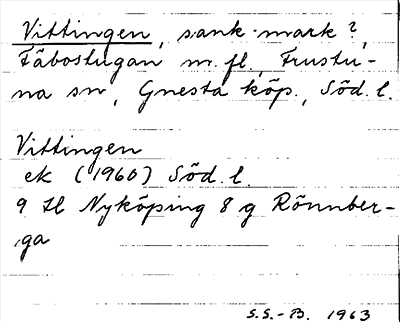 Vittingen, sank mark?,
Fäbostugan m. fl., Frustu-
na sn, Gnesta köp., Söd. l.
Vittingen
ek (1960) Söd. l.
9 H Nyköping 8 g Rönnber-
ga
S.S.-B. 1963